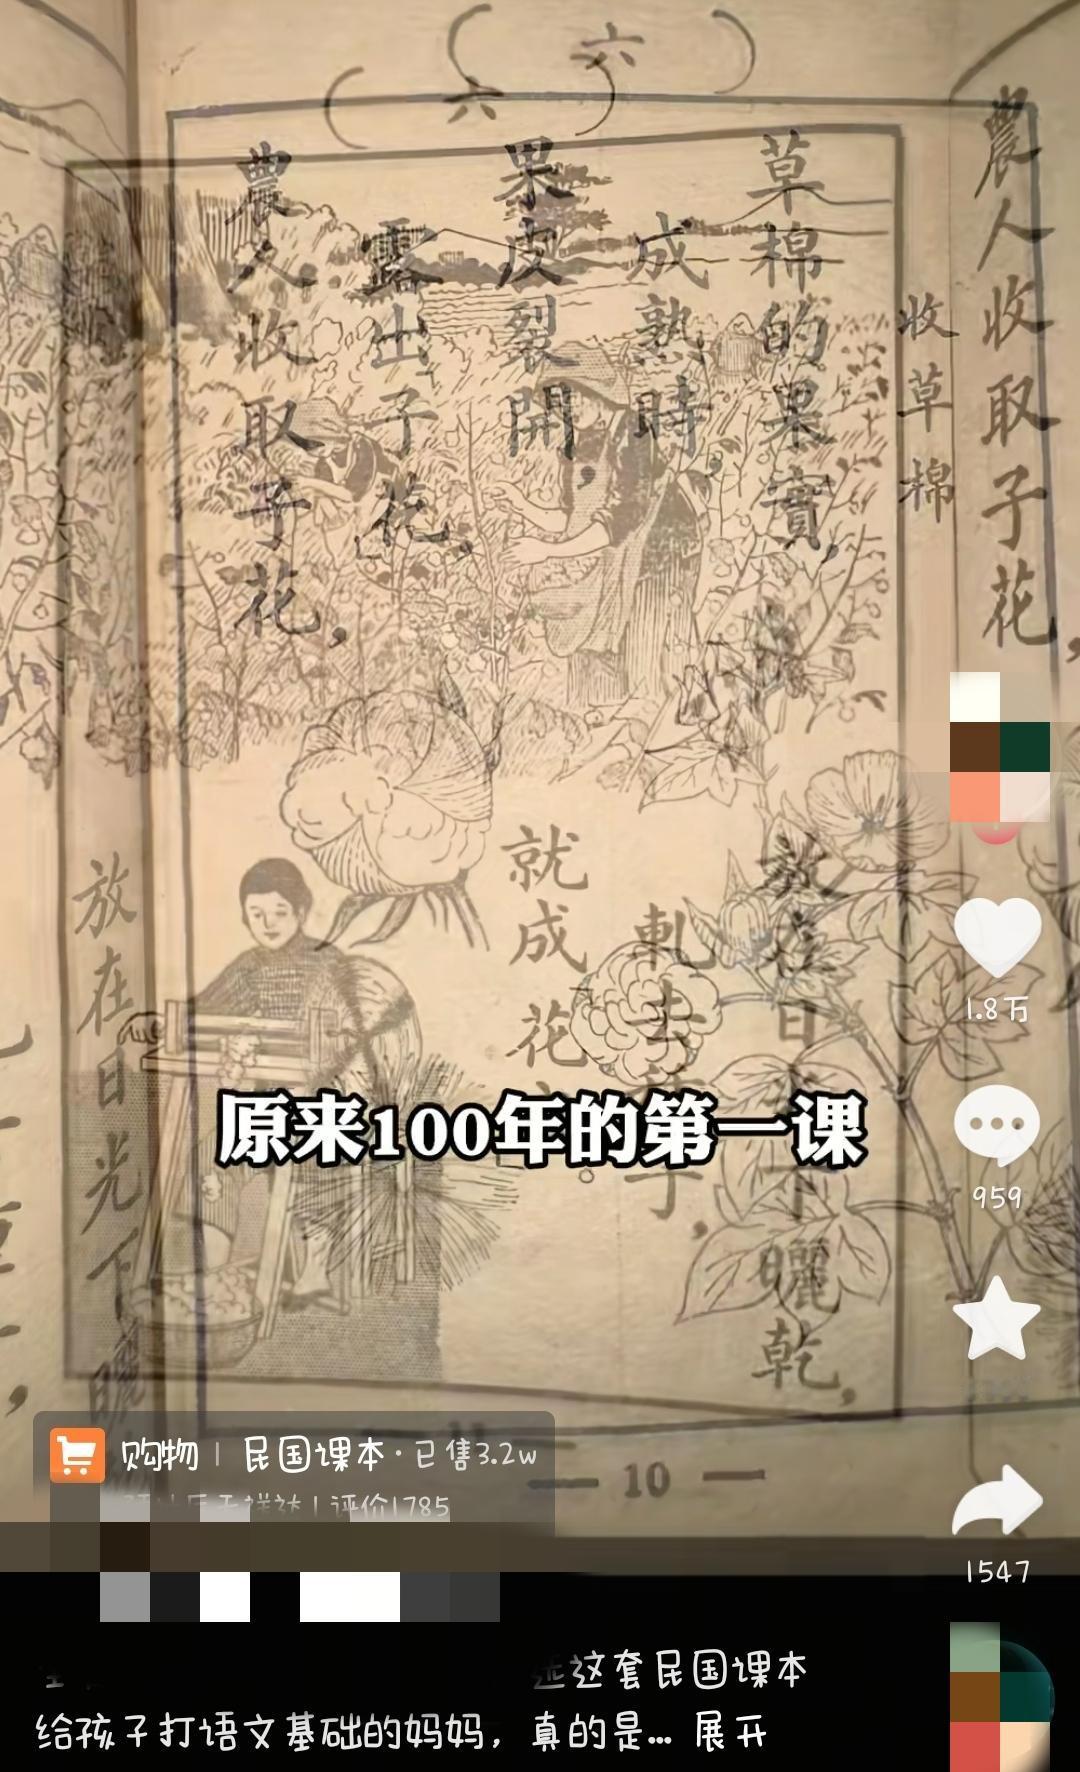 （六）
（六）
農人收取子花，
收草棉
草棉的果實，
成熟時
果皮裂開，
露出子花，
農人收取子花，
放在日光下曬乾，
軋去種子，
就成花
放在日光下曬
原来100年的第一课
1.8万
959
1547
购物 | 民国课本·已售3.2w
评价1785
— 10 —
这套民国课本
给孩子打语文基础的妈妈，真的是... 展开